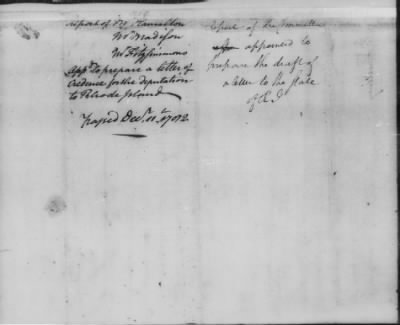 report of Mr Hamilton
Mr Madison
Mr Fitzsimmons
Appd to prepare a letter of
Credence for the deputation
to Rhode Island
Passed Decr 11th 1782
report of the Committee
appointed to
prepare the draft of
a letter to the State
of R. I